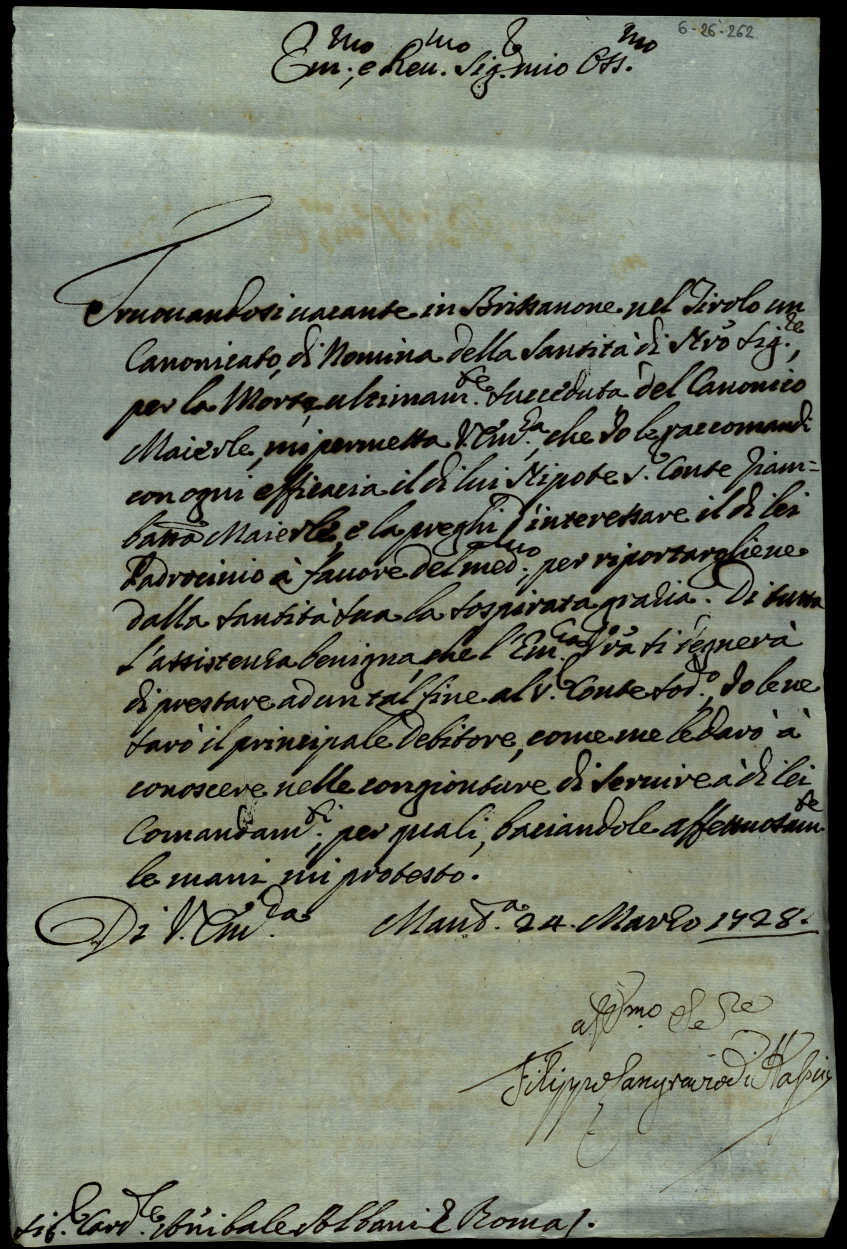 6-26-262
Em.mo, e Reu.mo Sig.r mio Oss.mo
Truouandosi uacante in Brissanone nel Tirolo un
Canonicato, di Nomina della Santità di Nrõ Sig.re,
per la Morte, ultimam.te succeduta del Canonico
Maierle, mi permetta V. Em.za, che Io le raccomandi
con ogni efficacia il di lui Nipote S.r Conte Giam=
batta Maierle, e la preghi d'interessare il di lei
Padrocinio à fauore del med.mo, per riportargliene
dalla Santità Sua la sospirata grazia. Di tutta
l'assistenza benigna, che l'Em.za Vrã si degnerà
di prestare ad un tal fine al S.r Conte sod.o, Io le ne
sarò il principale Debitore, come me le darò à
conoscere nelle congionture di seruire à di lei
Comandam.ti, per quali, baciandole affettuosam.te
le mani, mi protesto.
Di V. Em.za Mant.a 24. Marzo 1728.
aff.mo
Filippo Langravio di Hassia
Sig.r Card.le Annibale Albani &. Roma /.